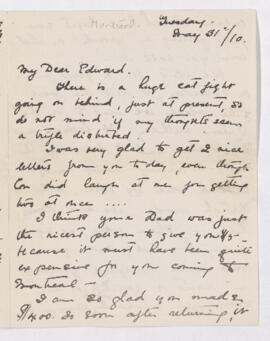 Tuesday.
May 31st/10.
My Dear Edward.
There is a huge cat fight
going on behind, just at present, so
do not mind if my thoughts seem
a trifle disturbed.
I was very glad to get 2 nice
letters from you to-day, even though
Con did laugh at me for getting
two at once ....
I think your Dad was just
the nicest person to give you $5-
because it must have been quite
expensive for you coming to
Montreal -
I am so glad you made
$4.00. so soon after returning, it